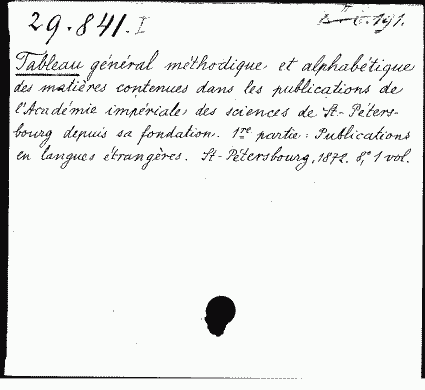 29.841. I
Tableau général méthodique et alphabétique
des matières contenues dans les publications de
l'Académie impériale des sciences de St-Péters-
bourg depuis sa fondation. 1re partie: Publications
en langues étrangères. St-Pétersbourg, 1872. 8,° 1 vol.